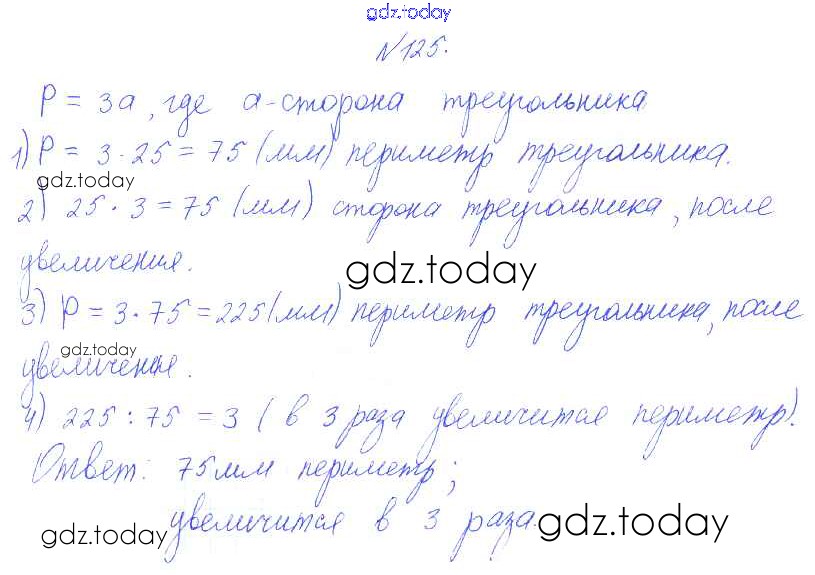 gdz.today
№125.
P = 3a, где a-сторона треугольника
1) P = 3·25 = 75 (мм) периметр треугольника.
gdz.today
2) 25·3 = 75 (мм) сторона треугольника, после
увеличения.
gdz.today
3) P = 3·75 = 225 (мм) периметр треугольника, после
gdz.today
увеличения.
4) 225 : 75 = 3 (в 3 раза увеличится периметр).
Ответ: 75 мм периметр;
увеличится в 3 раза.
gdz.today
gdz.today